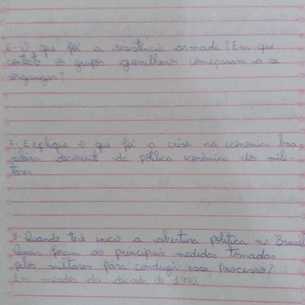 6- O que foi a resistência armada? Em que
contexto os grupos guerrilheiros começaram a se
organizar?
7- Explique o que foi a crise na economia bra-
sileira decorrente da política econômica dos mili-
tares.
8- Quando teve início a abertura política no Brasil
Quais foram as principais medidas tomadas
pelos militares para conduzir esse processo?
Em meados da década de 1970